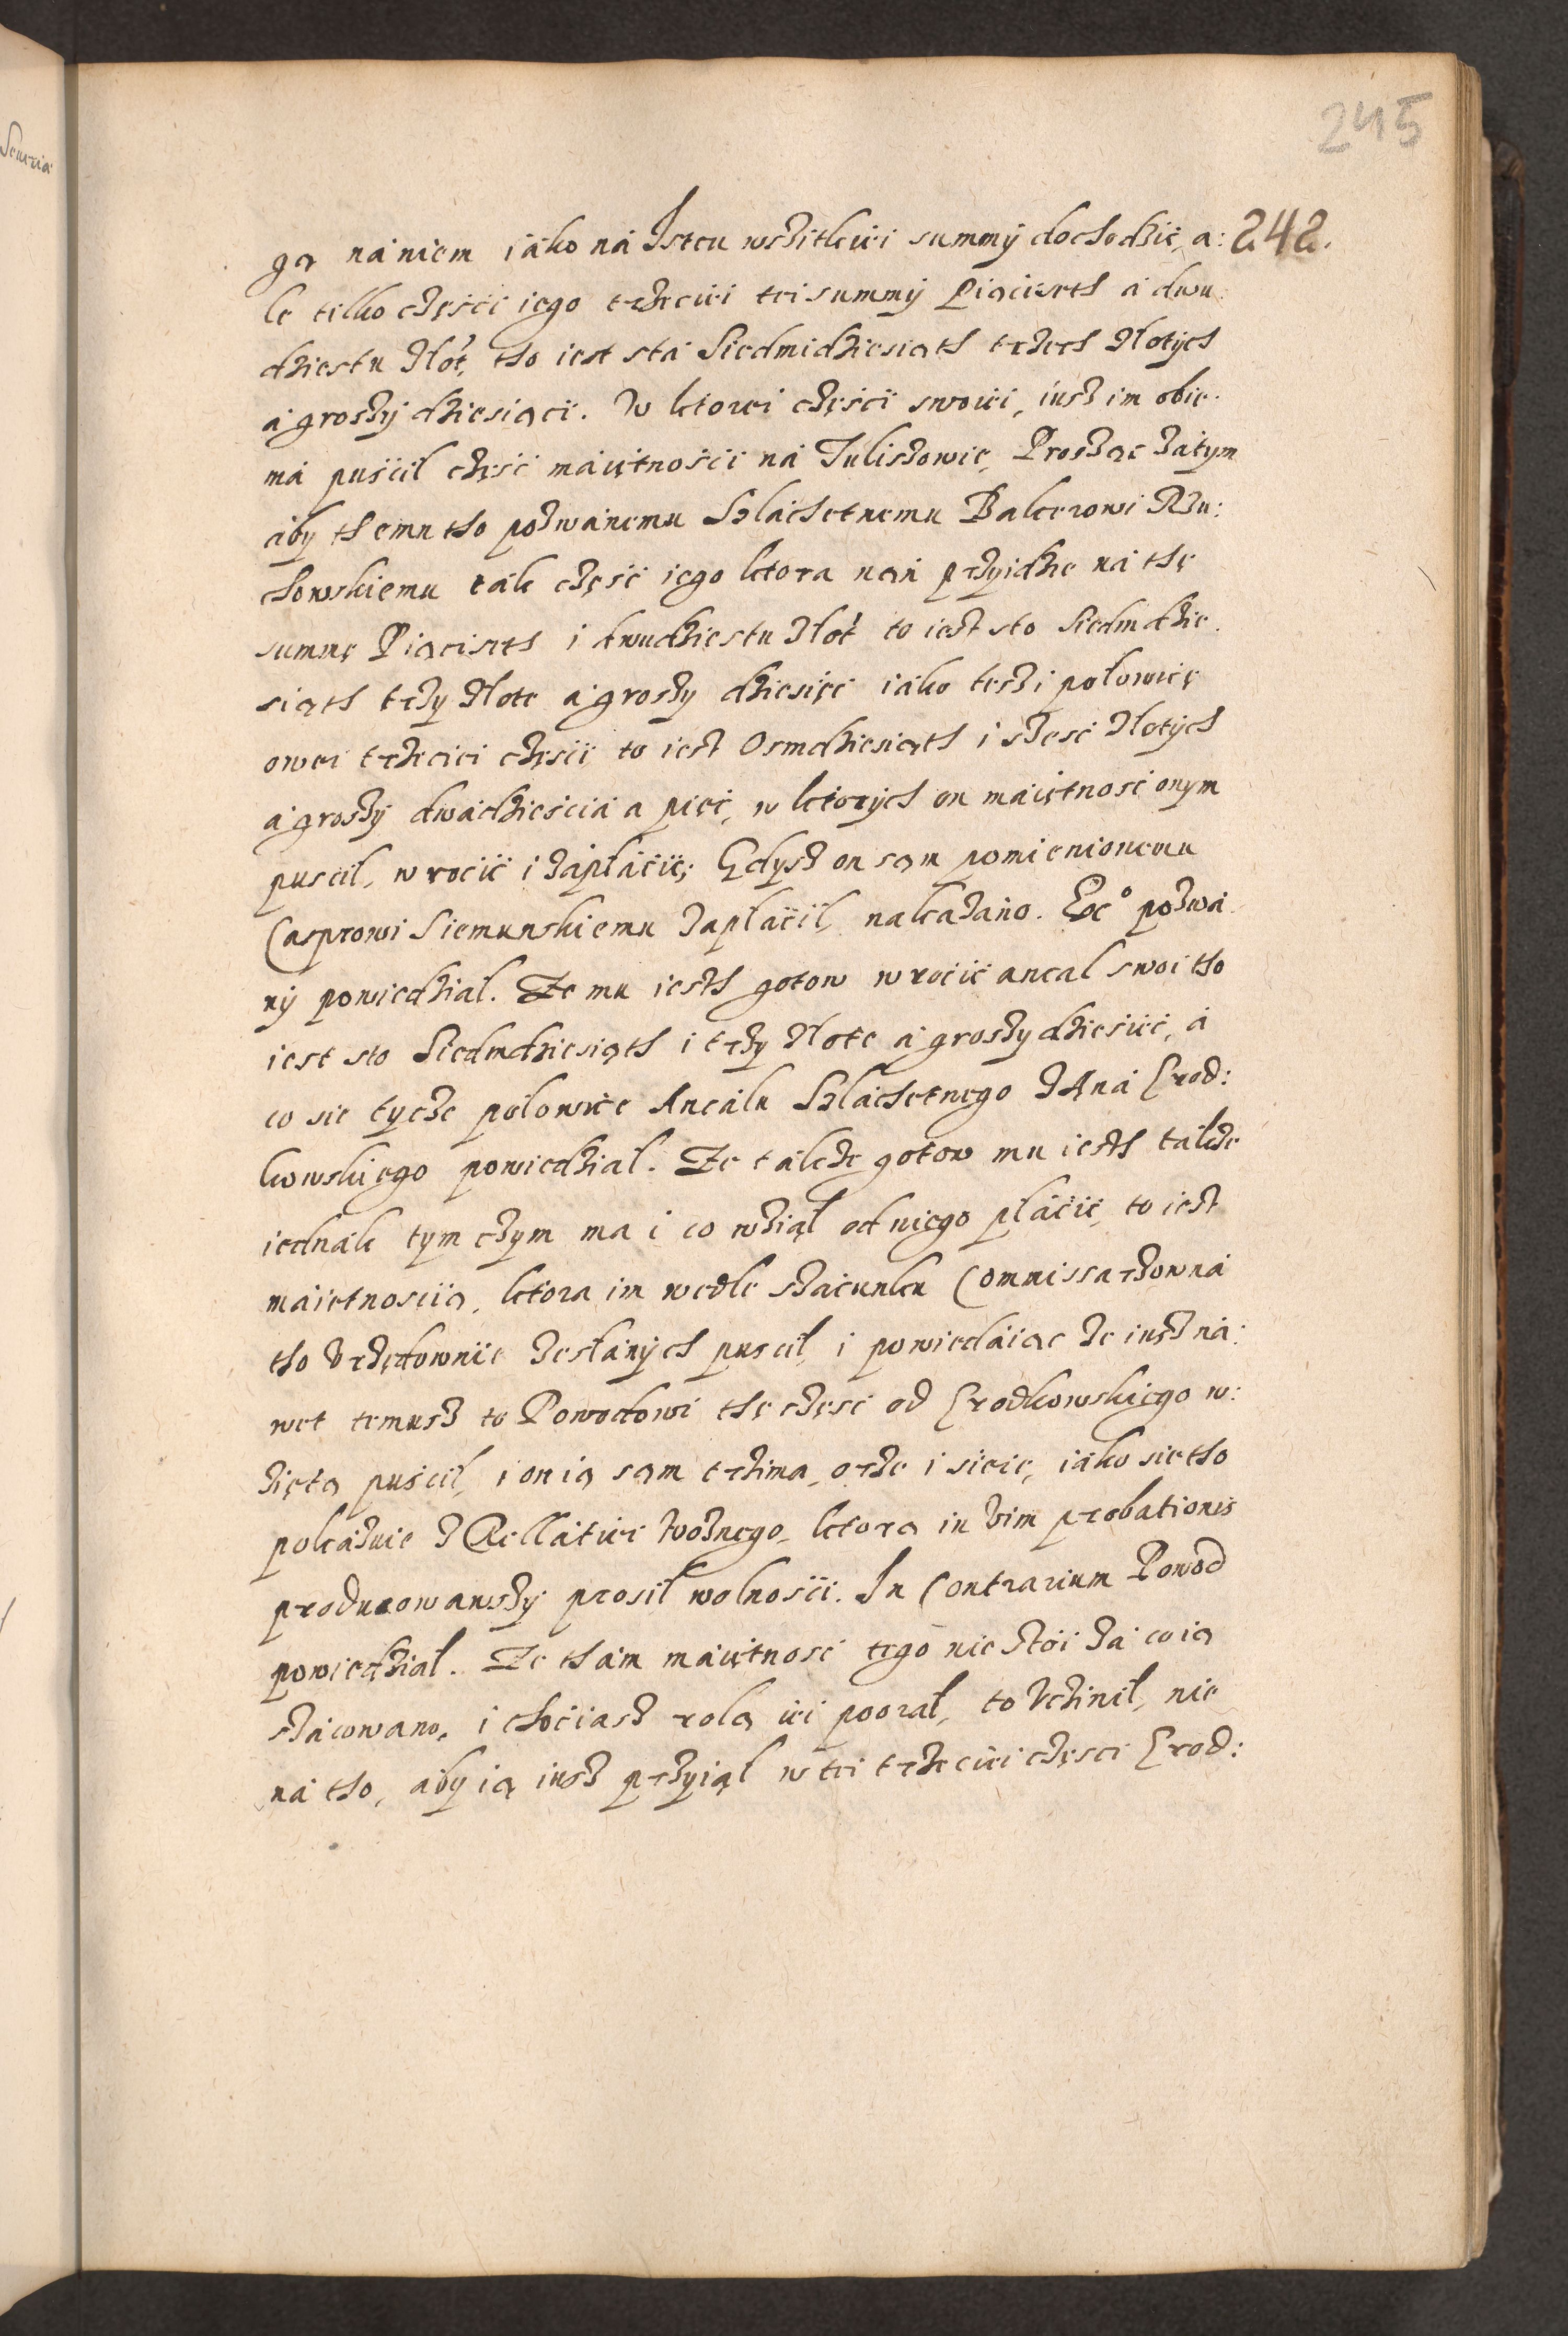 245
242.
gą na niem iako na Istcu wszitkiei summy dochodzic, a:
le tilko częsci iego trzeciei tei summy Piąciseth a dwu
dziestu złot, tho iest sta Siedmidziesiąth trzech złotych
a groszy dziesiąci. W ktorei częsci swoiei, iusz im obie
ma puscil częsc maiętnosci na Juliszowie, Prosząc zatym
aby themu tho pozwanemu Szlachetnemu Balcerowi Rzu:
chowskiemu tak częsc iego ktora nań przyidze na thę
summę Piąciseth i dwudziestu złot to iest sto Siedmdzie
siąth trzy złote a groszy dziesięc iako tesz i połowicę
owei trzeciei częsci to iest Osmdziesiąth i szesc złotych
a groszy dwadziescia a pięc, w ktorych on maiętnosc onym
puscil, wrocic i zapłacic; Gdysz on sam pomienionemu
Casprowi Siemunskiemu zapłacil, nakazano. Ex° pozwa
ny powiedzial. Ze mu iesth gotow wrocic ancal swoi tho
iest sto Siedmdziesiąth i trzy złote a groszy dziesiec, a
co sie tycze polowice Ancalu Szlachetnego Jana Grod:
kowskiego powiedzial. Ze takze gotow mu iesth takze
iednak tym czym ma i co wziął od niego płacic, to iest
maietnoscią, ktora im wedle szacunku Commissarzow na
tho Vrzędownie zesłanych puscil, i powiedaiąc ze iusz na:
wet temusz to Powodowi thę częsc od Grodkowskiego w:
ziętą puscil, i on ią sam trzima, orze i sieie, iako sie tho
pokazuie z Rellatiei Woznego, ktorą in vim probationis
producowawszy prosil wolnosci. In Contrarium Powod
powiedzial. Ze tham maiętnosc tego nie stoi za co ią
szacowano, i chociasz rolą iei poorał, to Vczinił, nie
na tho, aby ią iusz przyiął w tei trzeciei częsci Grod: